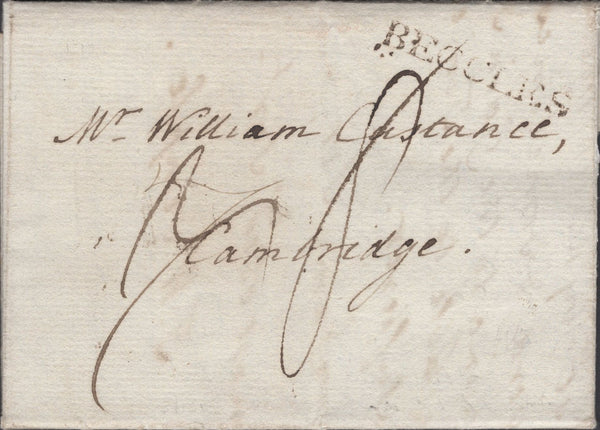 BECCLES
Mr William Custance,
Cambridge.
8